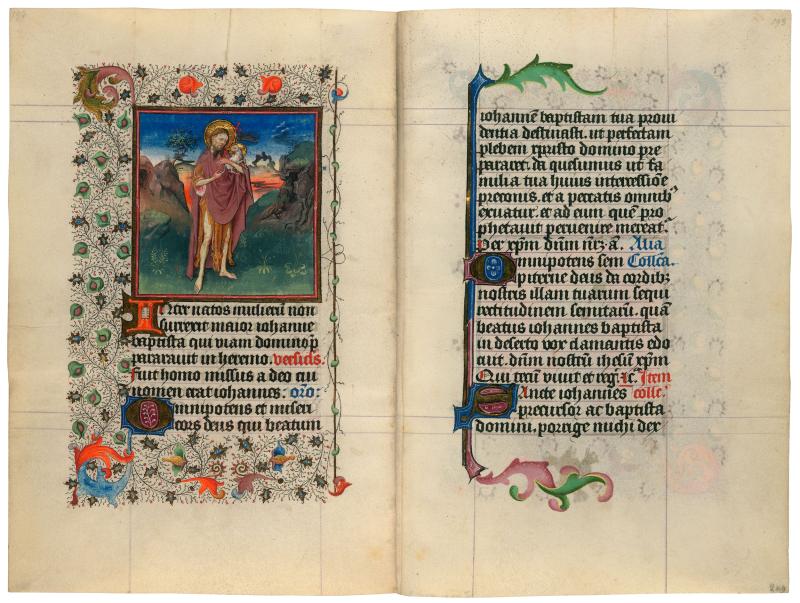 Inter natos mulierū non
surrexit maior iohanne
baptista qui viam domino p̄
parauit in heremo. versic̄ls.
Fuit homo missus a deo cui
nomen erat iohannes. or̄o:
Omnipotens et miseri
cors deus qui beatum
iohannē baptistam tua proui
dentia destinasti. ut perfectam
plebem xpristo domino pre
pararet. da quesumus ut fa
milia tua huius intercessiōe
preconis. et a peccatis omnib᷒
exuatur. et ad eum quē pro
phetauit peruenire mereat᷒.
Per xp̄m dūm nr̄z a. Alia
Omnipotens sem Collc̄a.
piterne deus da cordibz
nostris illam tuarum sequi
rectitudinem semitarū. quā
beatus iohannes baptista
in deserto vox clamantis edo
cuit. dūm nostrū ihesū xp̄m
Qui tecū viuit et reg. Item
Sancte iohannes collc̄.
precursor ac baptista
domini, porrige michi dex